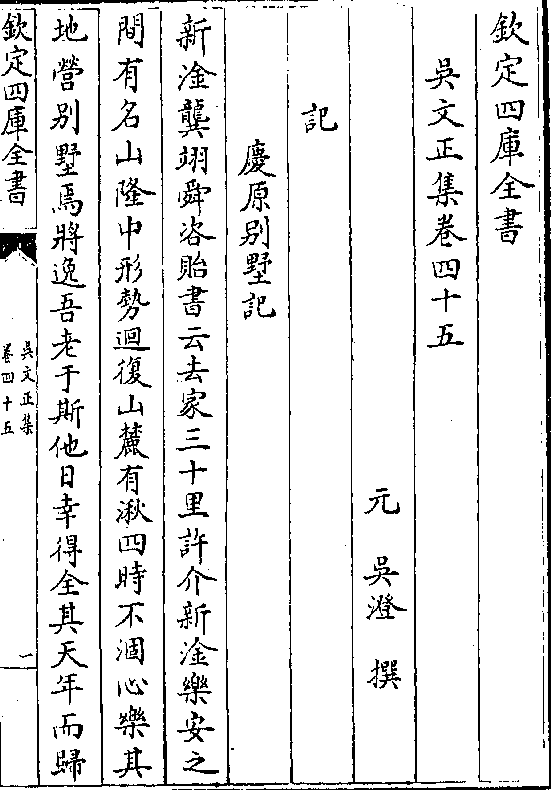 欽定四庫全書
吳文正集卷四十五
元 吳澄 撰
記
慶原别墅記
新淦龔翊舜咨貽書云去家三十里許介新淦樂安之
間有名山隆中形勢迴復山麓有湫四時不涸心樂其
地營别墅焉將逸吾老于斯他日幸得全其天年而歸
欽定四庫全書
吳文正集
卷四十五
一